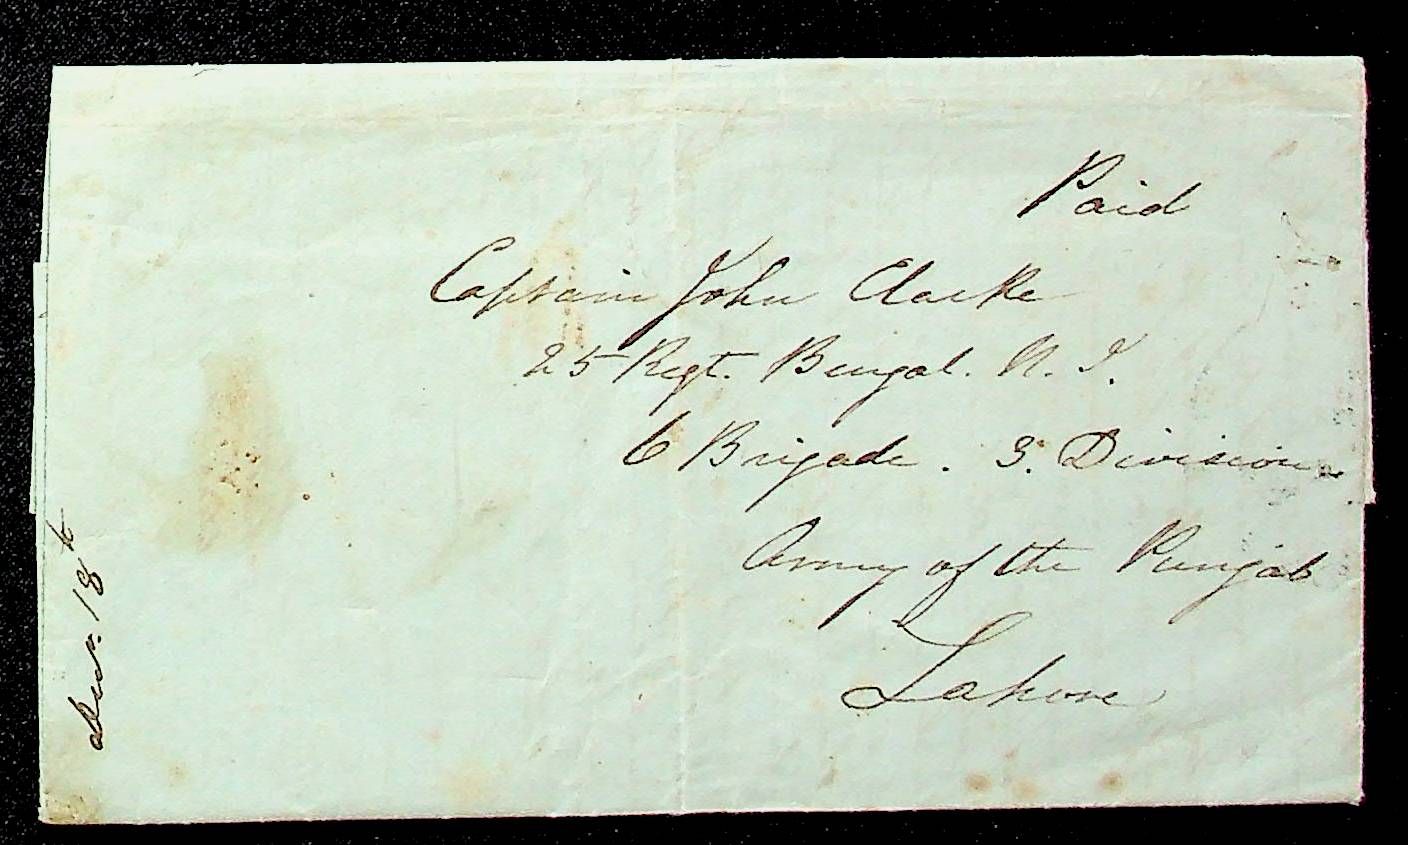 Paid
Captain John Clarke
25 Regt. Bengal. N. I.
6 Brigade. 3. Division
Army of the Punjab
Lahore
18th